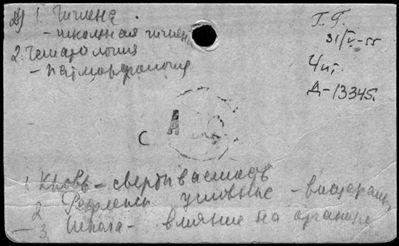 1. Гигиена
- школьная гигиена
2. Гематология
- патморфология
Г. Г.
31/V-55
4 ит.
Д-13345.
С А
1 Кровь - свертываемость
2 Рефлексы условные -
- 3. Школа - влияние на организм